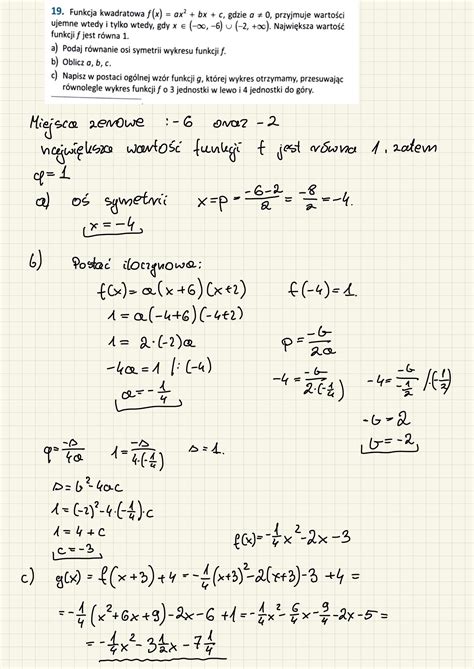 19. Funkcja kwadratowa f(x) = ax² + bx + c, gdzie a ≠ 0, przyjmuje wartości
ujemne wtedy i tylko wtedy, gdy x ∈ (−∞, −6) ∪ (−2, +∞). Największa wartość
funkcji f jest równa 1.
a) Podaj równanie osi symetrii wykresu funkcji f.
b) Oblicz a, b, c.
c) Napisz w postaci ogólnej wzór funkcji g, której wykres otrzymamy, przesuwając
równolegle wykres funkcji f o 3 jednostki w lewo i 4 jednostki do góry.
Miejsca zerowe : -6 oraz -2
największa wartość funkcji f jest równa 1, zatem
q=1
a) oś symetrii x=p= (-6-2)/2 = -8/2 = -4.
x=-4
b) Postać iloczynowa:
f(x)=a(x+6)(x+2) f(-4)=1.
1=a(-4+6)(-4+2)
1= 2·(-2)a p= -b/2a
-4a=1 /:(-4) -4= -b/(2·(-1/4)) -4= -b/(-1/2) /·(-1/2)
a=-1/4 -b=2
b=-2
q= -Δ/4a 1= -Δ/(4·(-1/4)) Δ=1.
Δ=b²-4ac
1=(-2)²-4·(-1/4)·c
1=4+c
c=-3 f(x)=-1/4x²-2x-3
c) g(x)=f(x+3)+4=-1/4(x+3)²-2(x+3)-3+4=
=-1/4(x²+6x+9)-2x-6+1=-1/4x²-6/4x-9/4-2x-5=
=-1/4x²-3 1/2x-7 1/4